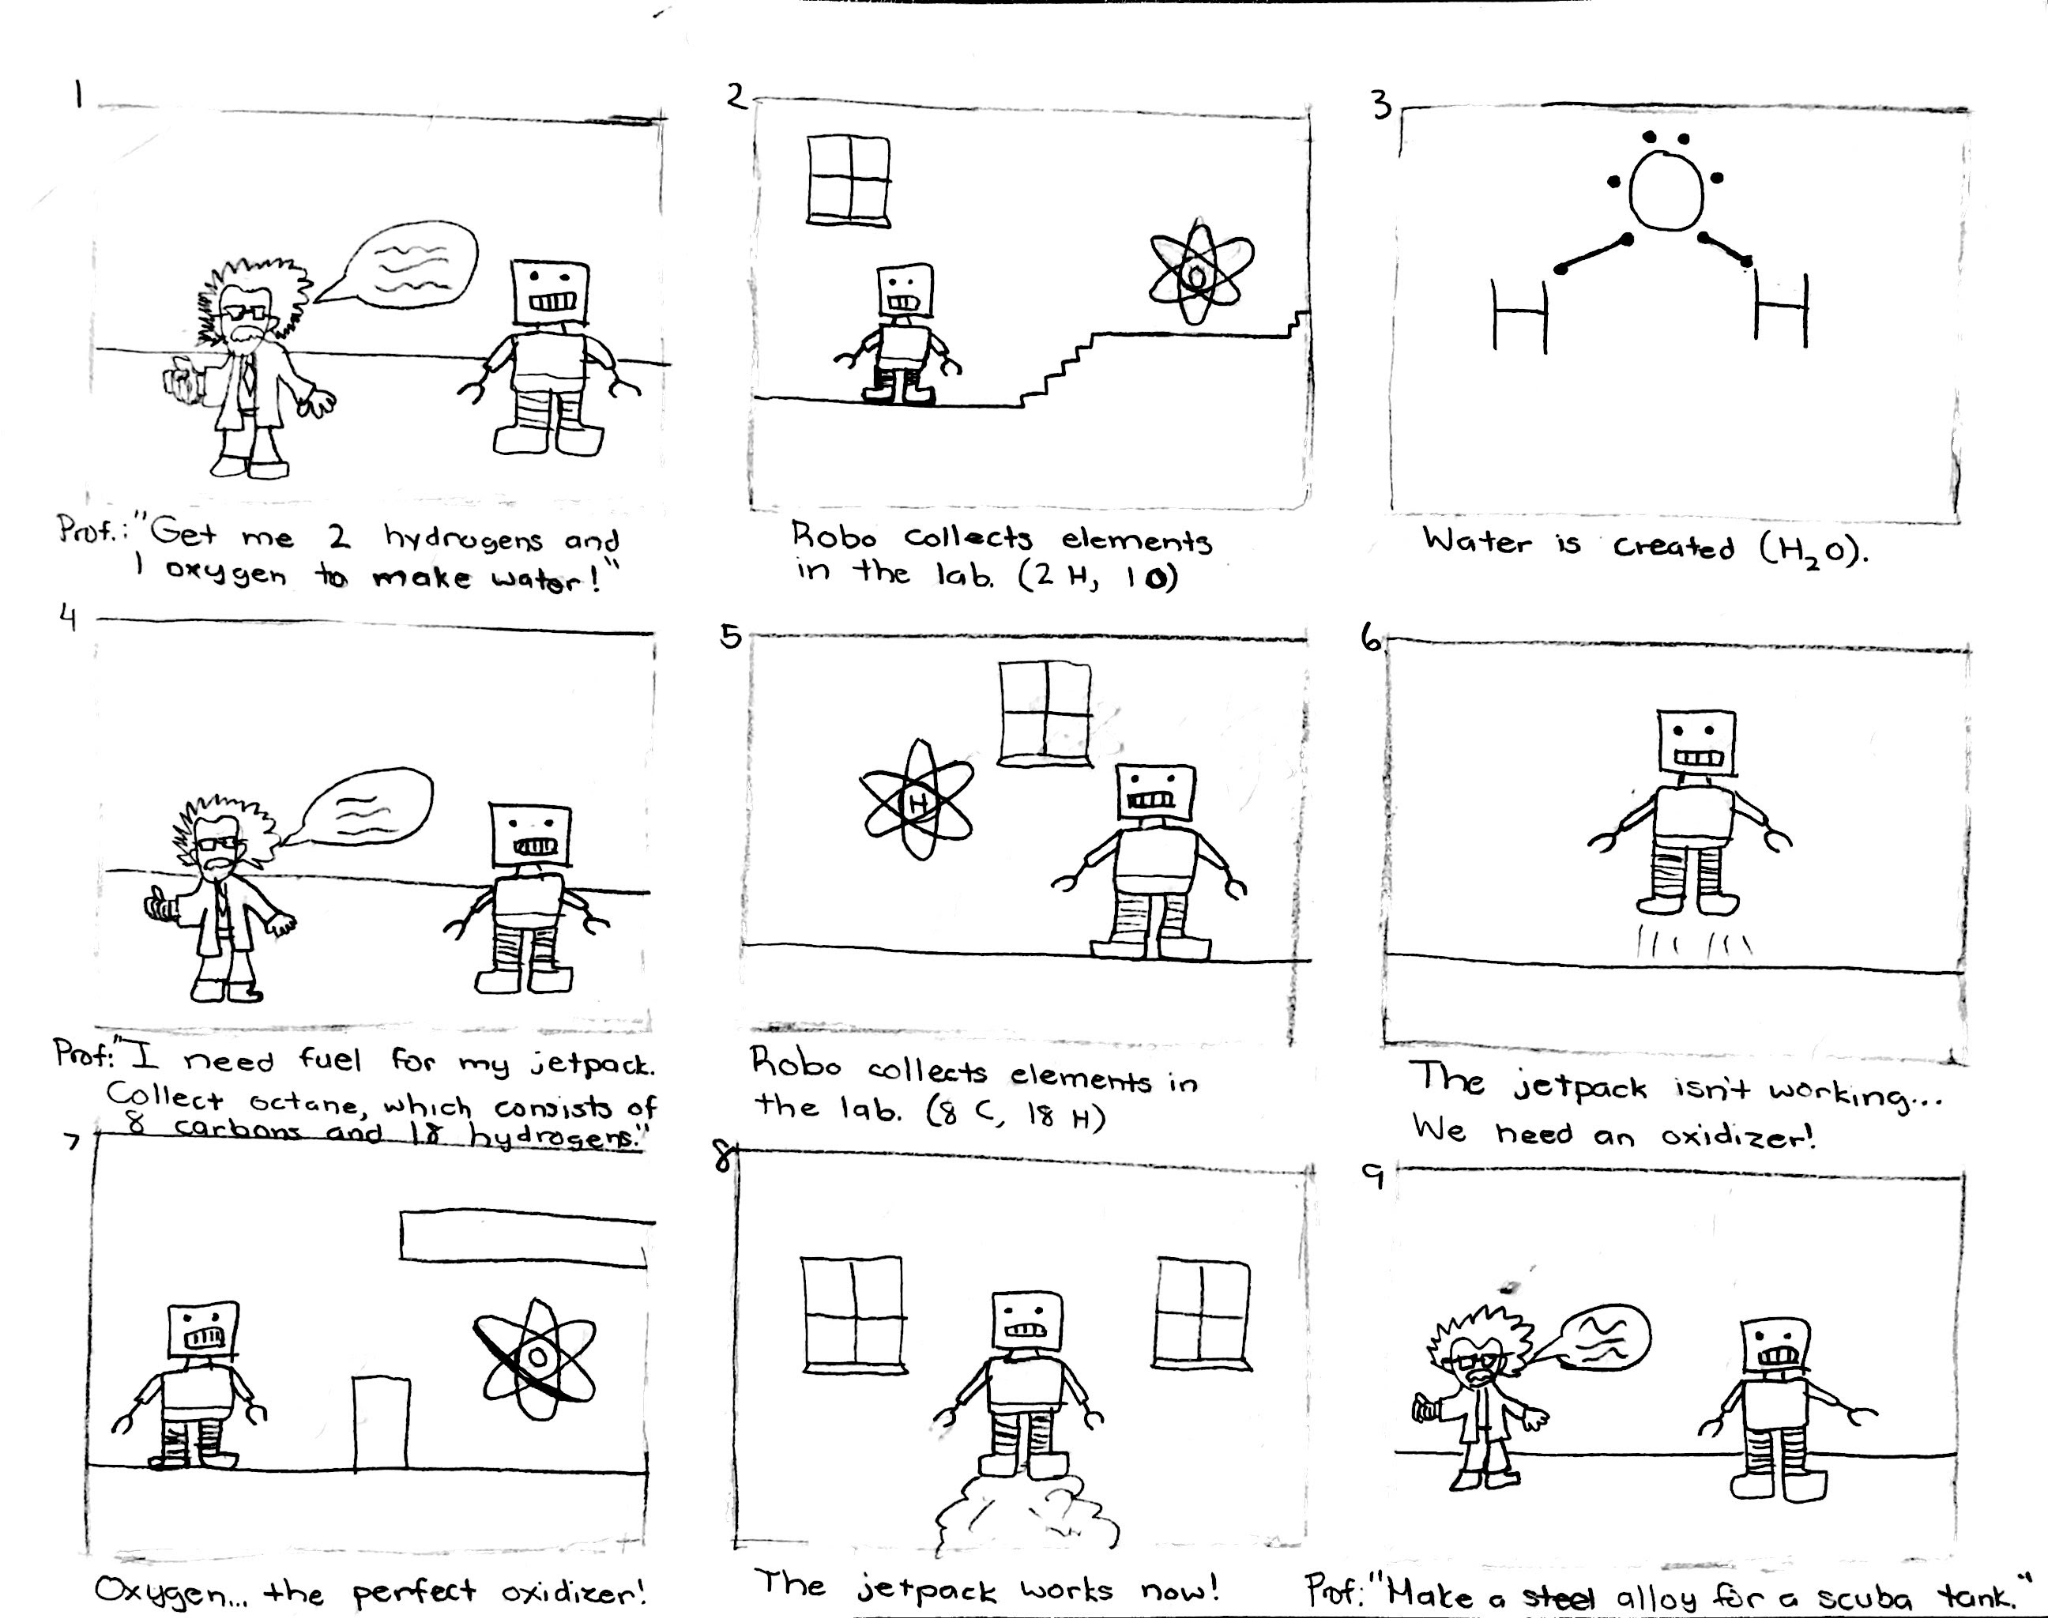 1
Prof.: "Get me 2 hydrogens and
1 oxygen to make water!"
2
O
Robo collects elements
in the lab. (2 H, 1 O)
3
H
H
Water is created (H₂O).
4
Prof: "I need fuel for my jetpack.
Collect octane, which consists of
8 carbons and 18 hydrogens."
5
H
Robo collects elements in
the lab. (8 C, 18 H)
6
The jetpack isn't working...
We need an oxidizer!
7
O
Oxygen... the perfect oxidizer!
8
The jetpack works now!
9
Prof: "Make a steel alloy for a scuba tank."